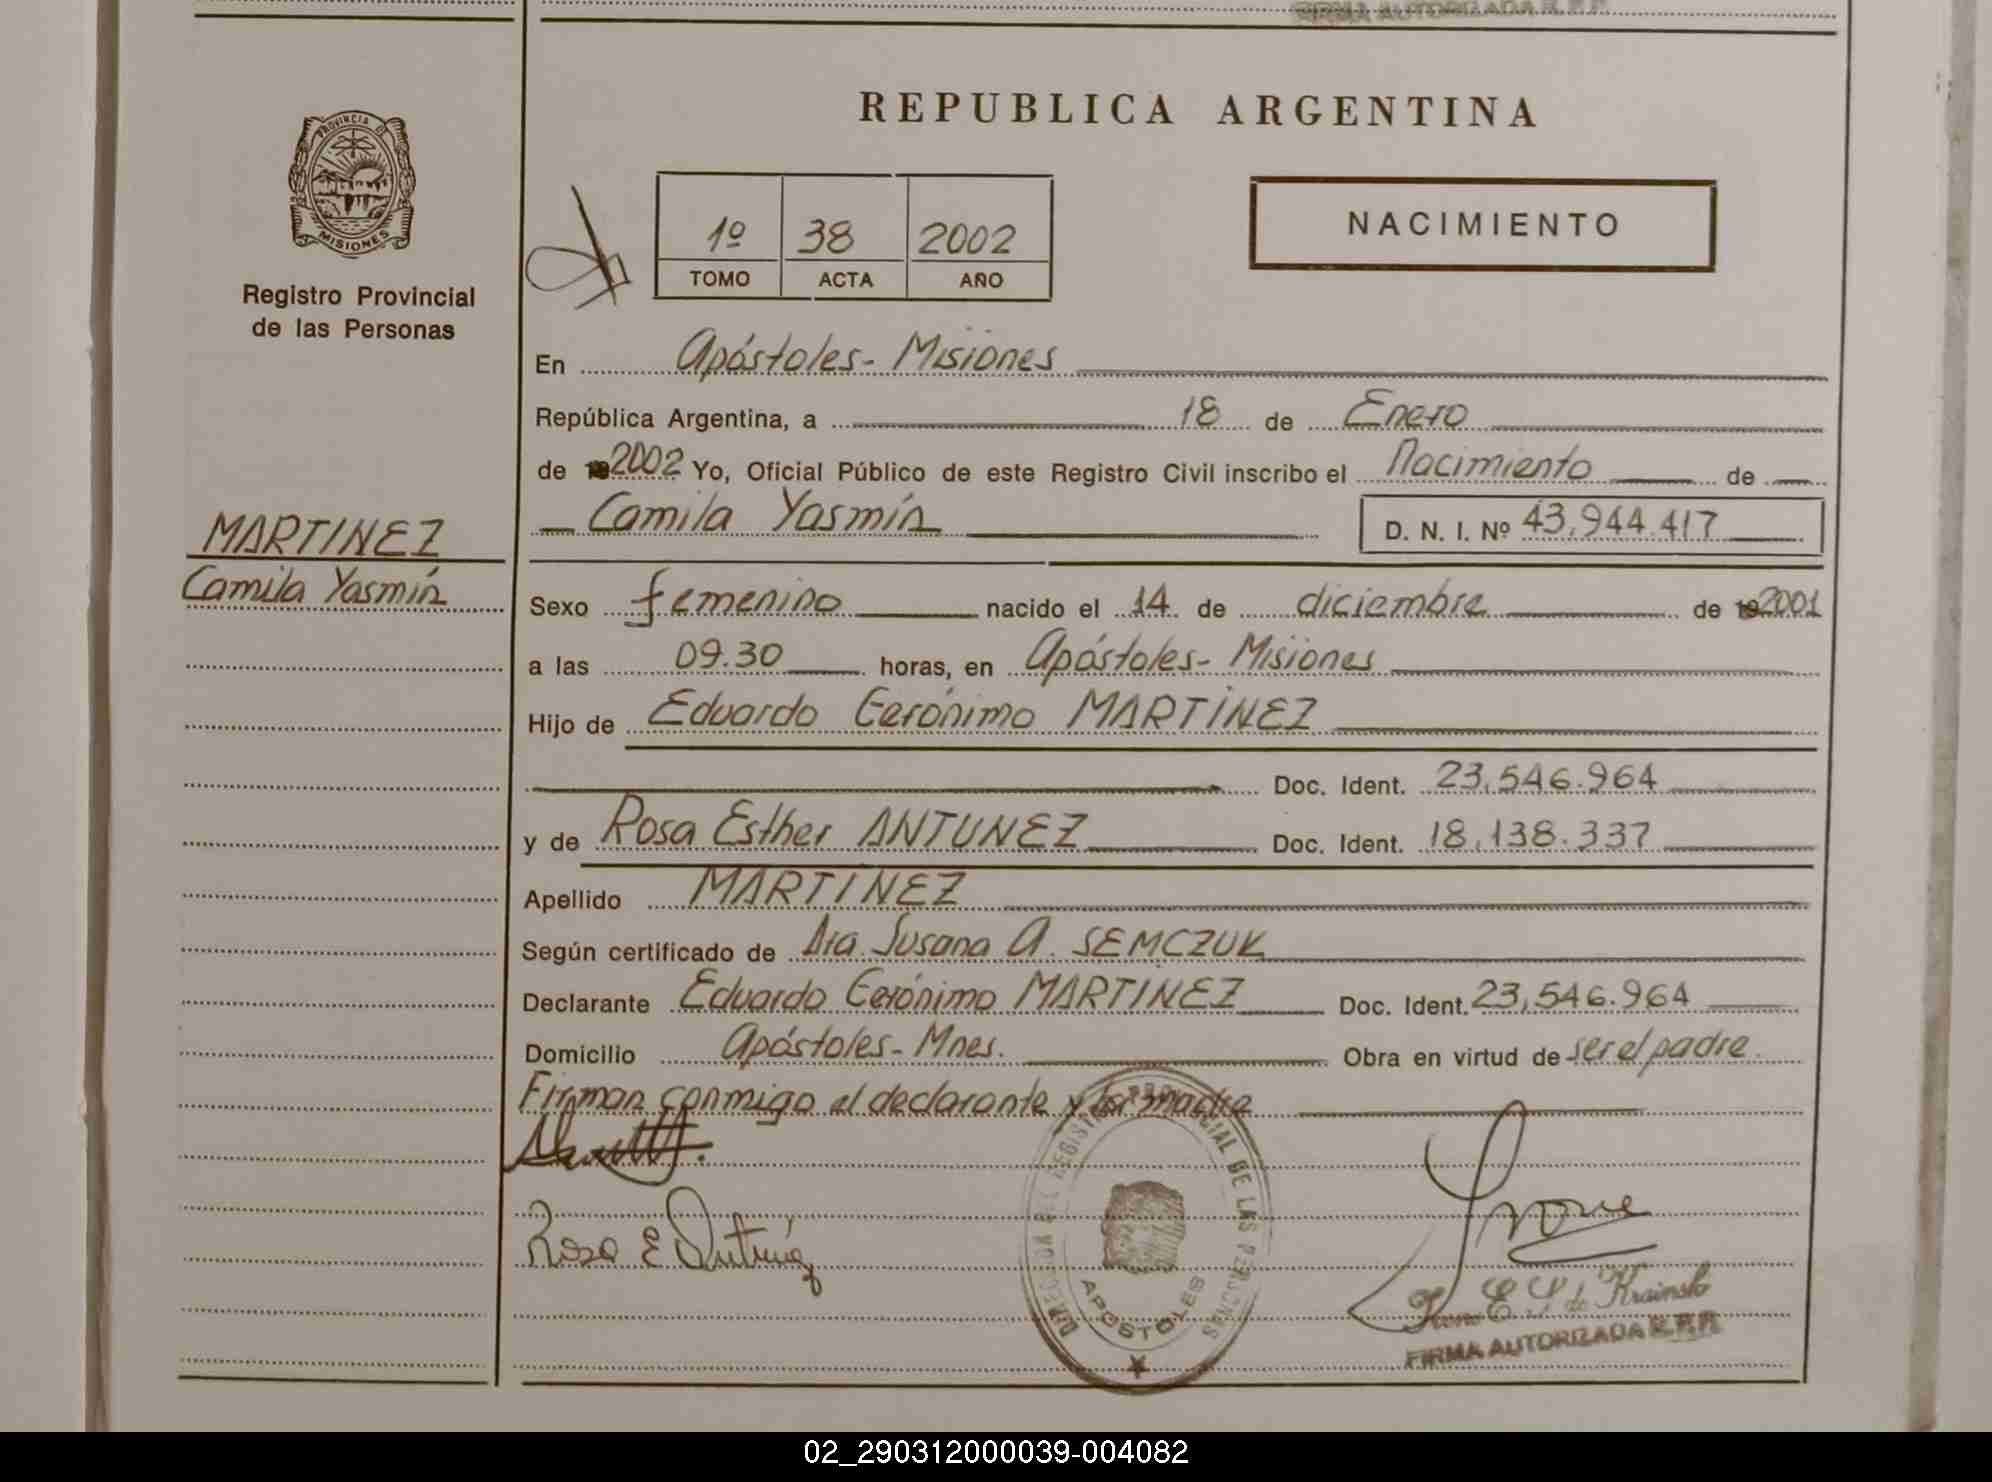 FIRMA AUTORIZADA R. P. P.
REPUBLICA ARGENTINA
PROVINCIA DE
MISIONES
Registro Provincial
de las Personas
1º 38 2002
TOMO ACTA AÑO
NACIMIENTO
En Apóstoles - Misiones
República Argentina, a 18 de Enero
de 2002 Yo, Oficial Público de este Registro Civil inscribo el Nacimiento de
Camila Yasmín D. N. I. Nº 43.944.417
MARTINEZ
Camila Yasmín
Sexo femenino nacido el 14 de diciembre de 2001
a las 09.30 horas, en Apóstoles - Misiones
Hijo de Eduardo Gerónimo MARTINEZ
Doc. Ident. 23.546.964
y de Rosa Esther ANTUNEZ Doc. Ident. 18.138.337
Apellido MARTINEZ
Según certificado de Dra. Susana A. SEMCZUK
Declarante Eduardo Gerónimo MARTINEZ Doc. Ident. 23.546.964
Domicilio Apóstoles - Mnes. Obra en virtud de ser el padre.
Firman conmigo el declarante y la madre
Rosa E Antunez
REGISTRO PROVINCIAL DE LAS PERSONAS
APOSTOLES
de Krainski
FIRMA AUTORIZADA R. P. P.
02_290312000039-004082